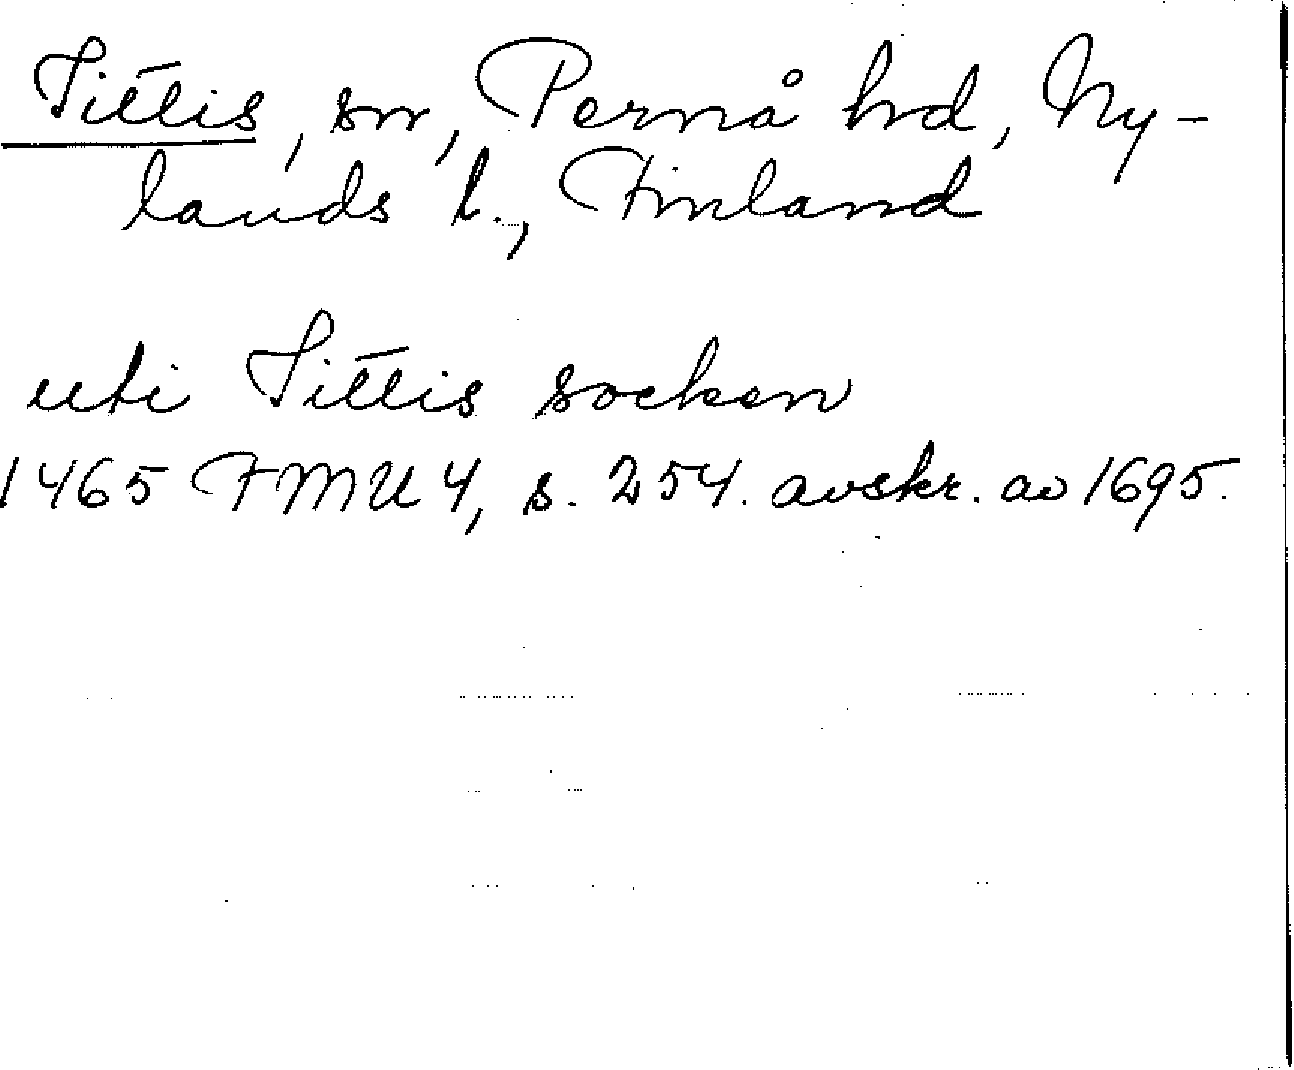 Iittis, sn, Pernå hrd, Ny-
lands l., Finland
uti Iittis socken
1465 FMU 4, s. 254. avskr. av 1695.